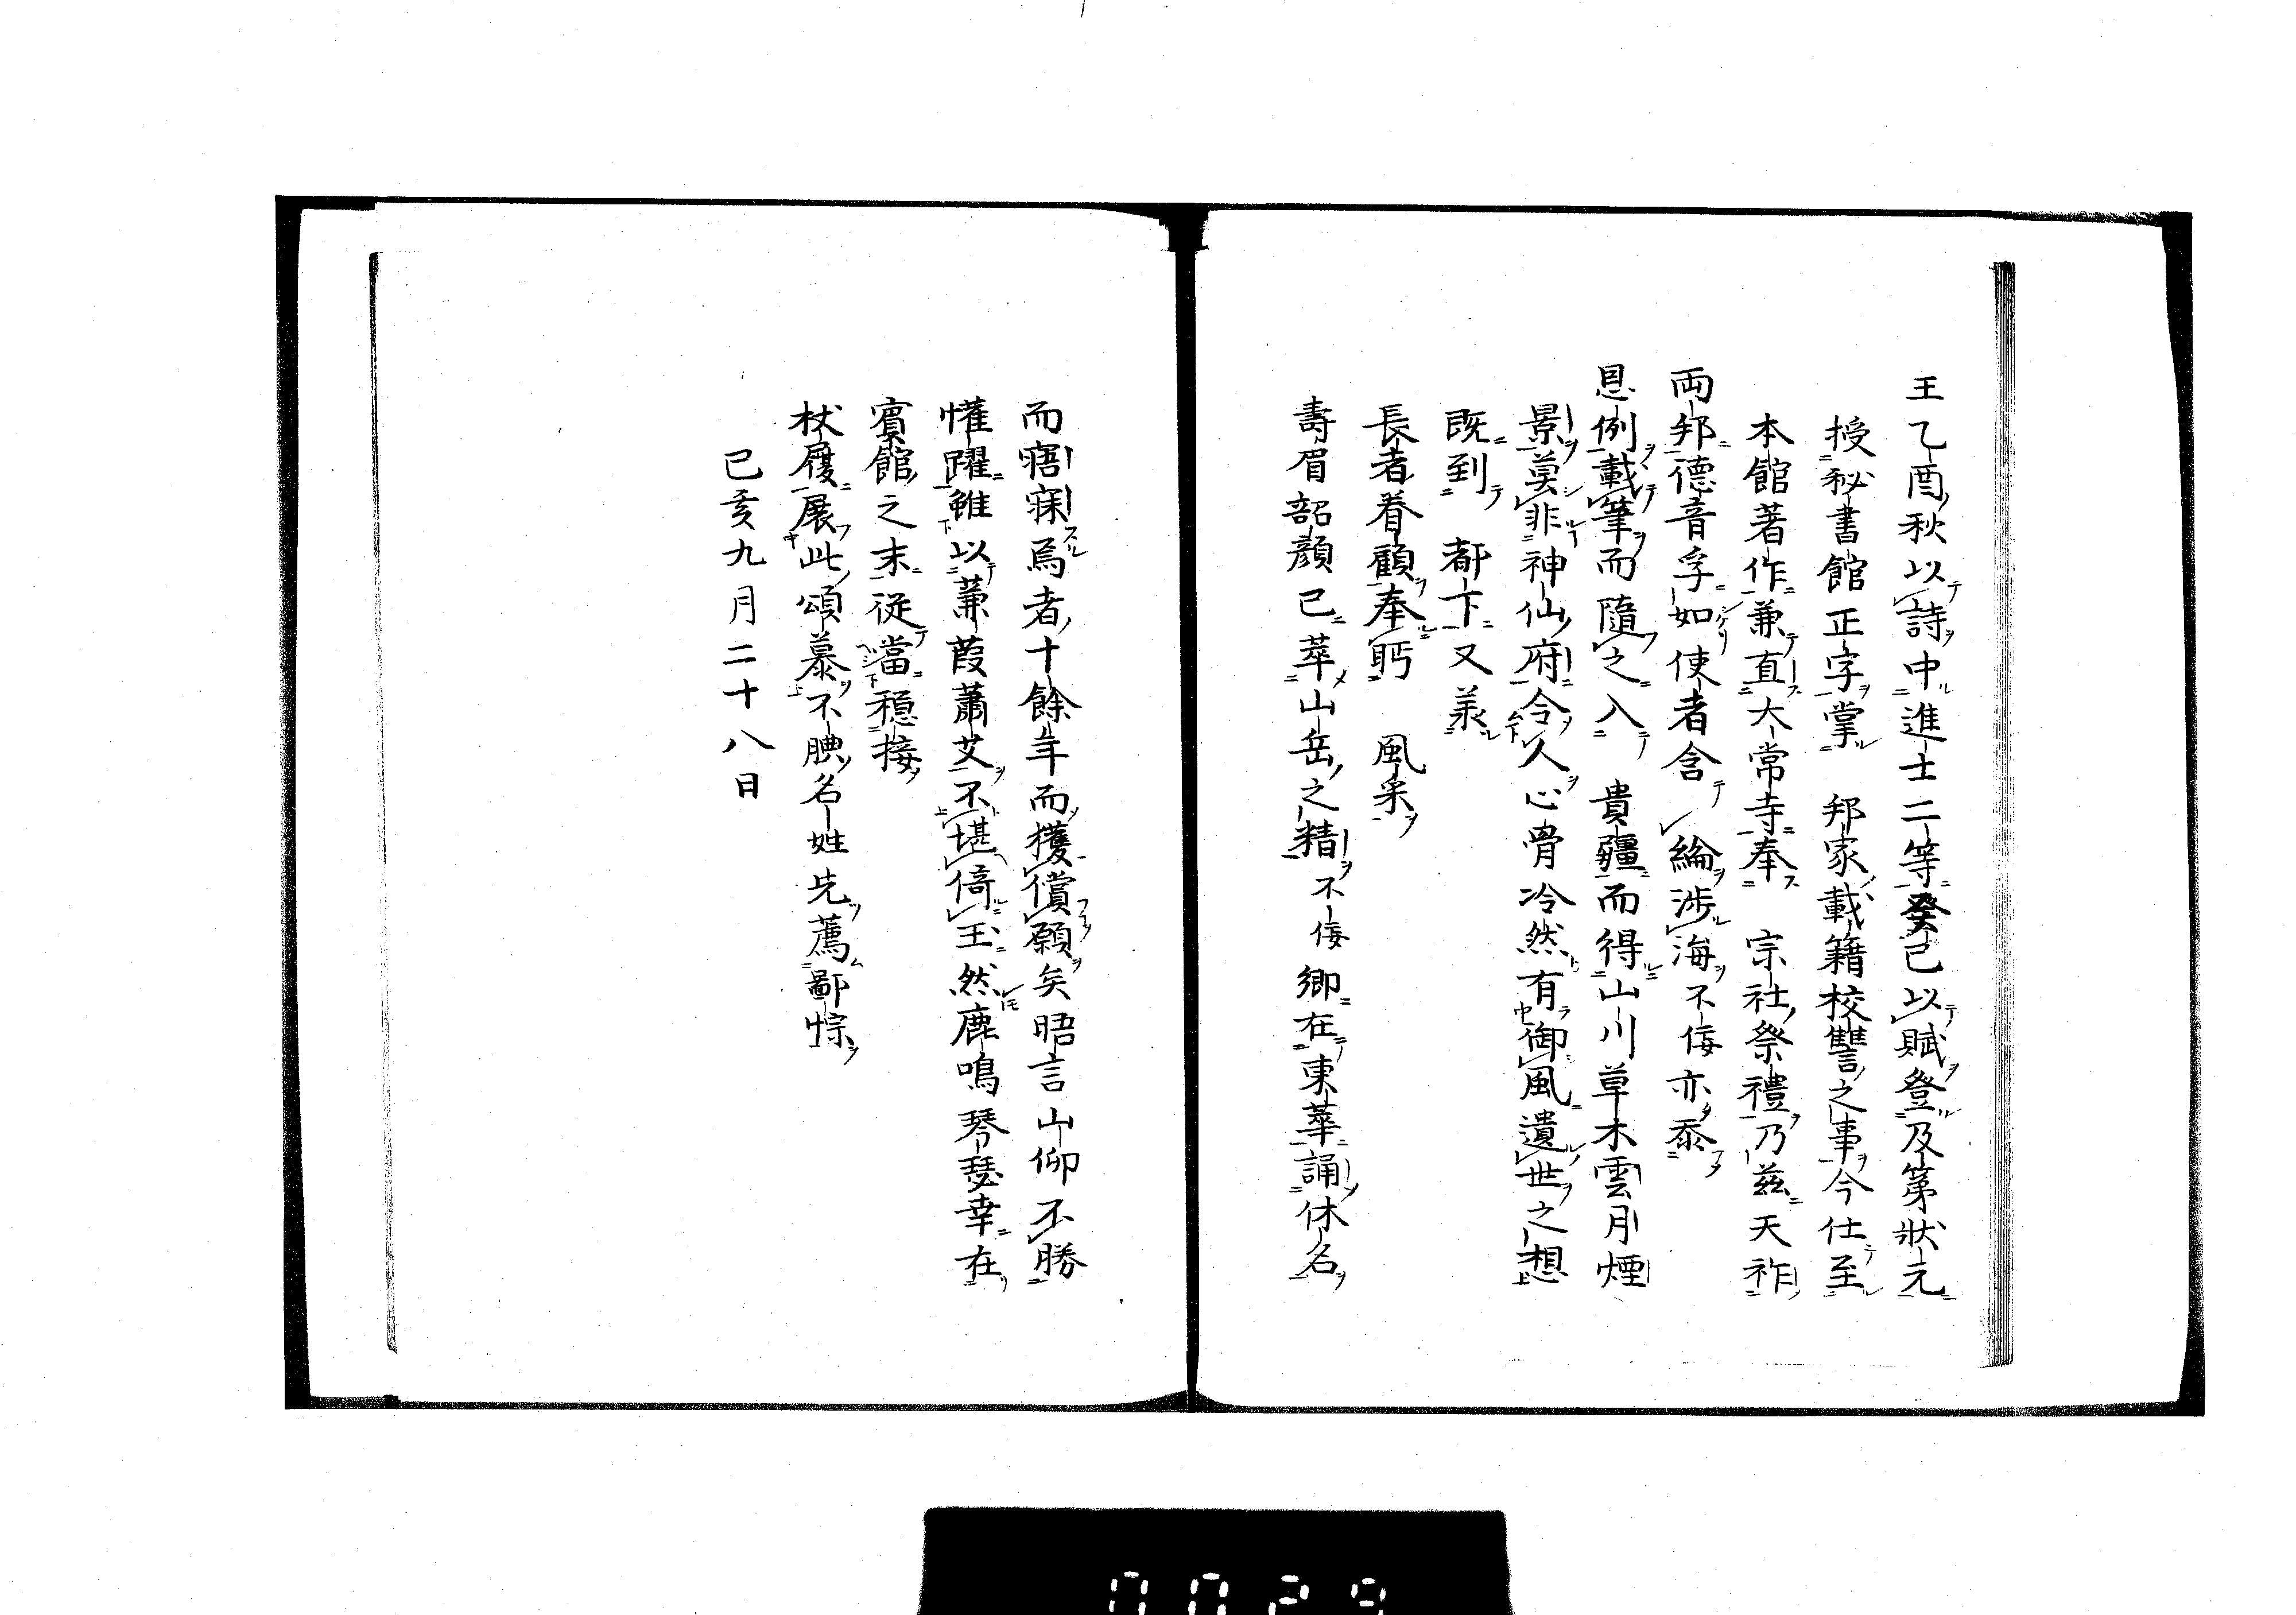 王乙酉秋以詩中進士二等癸已以賦登及第狀元
授秘書館正字掌　邦家載籍校讐之事今仕至
本館著作兼直大常寺奉　宗社祭禮乃茲天祚
両邦德音孚如使者含　綸涉海不侫亦忝
恩例載筆而隨之入　貴疆而得山川草木雲月煙
景莫非神仙府令人心骨冷然有御風遺世之想
既到　都下又美
長者眷顧奉眄　風采
壽眉韶顔已萃山岳之精不侫卿在東華誦休名
而寤寐焉者十餘年而獲償願矣晤言山仰不勝
懽躍雖以蒹葭蕭艾不堪倚玉然鹿鳴琴瑟幸在
賓館之末從當穩接
杖屨展此頌慕不腆名姓先薦鄙悰
己亥九月二十八日
0029